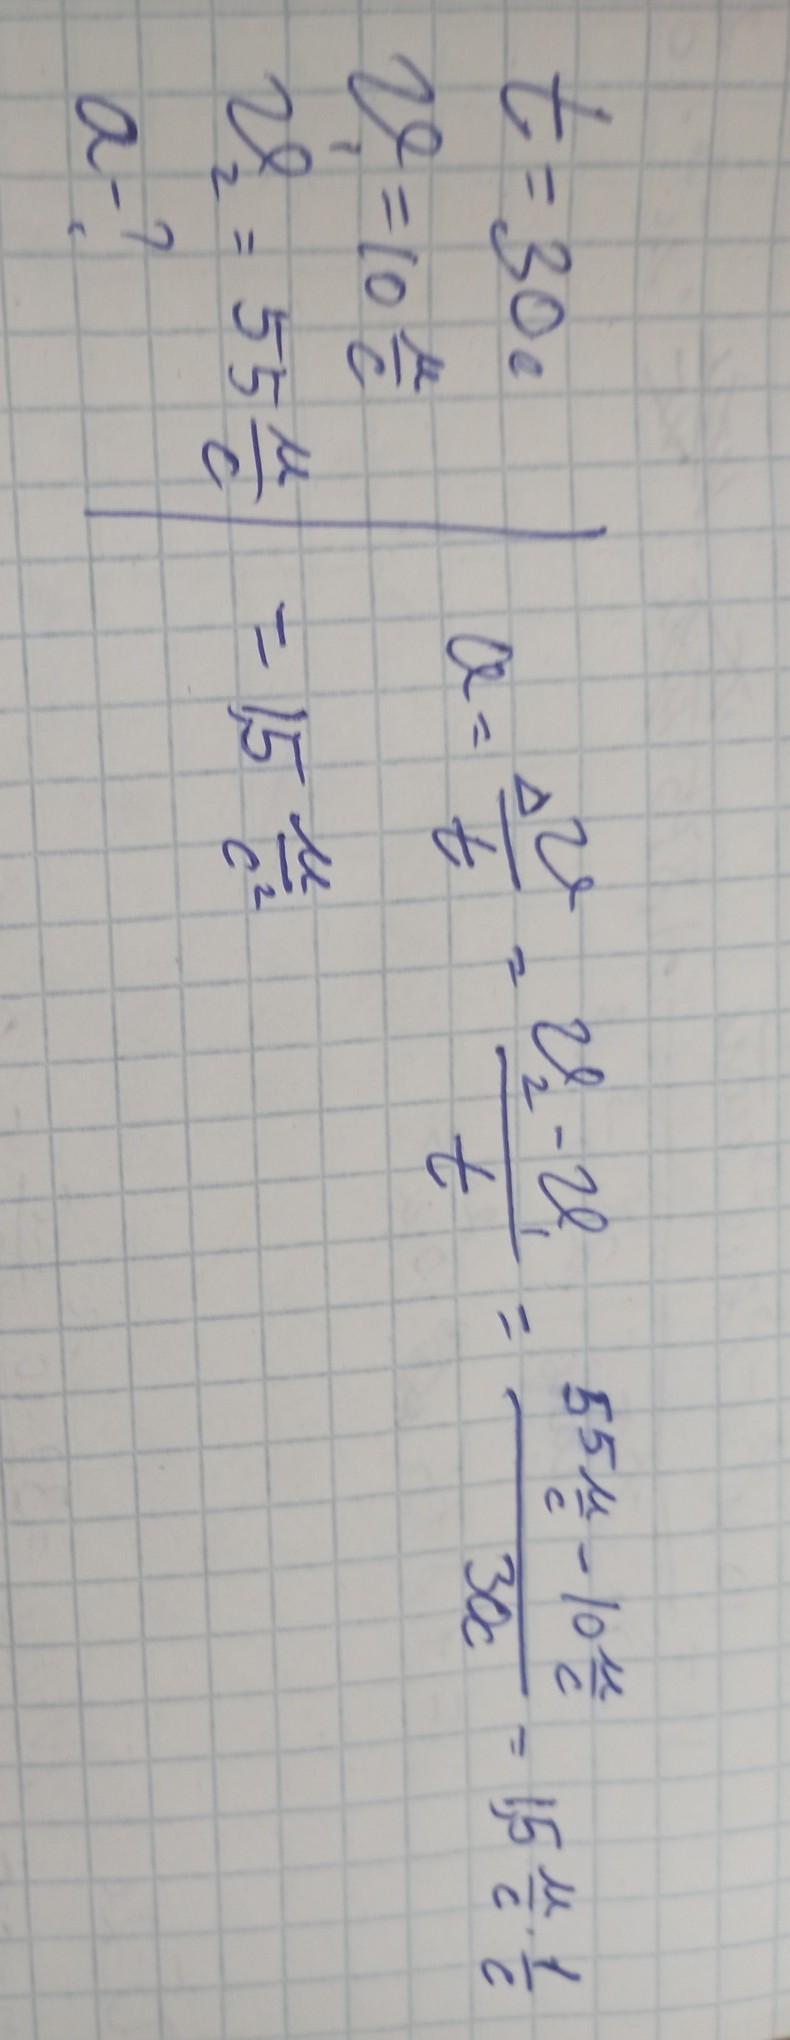 t = 30с
υ₁ = 10 м/с
υ₂ = 55 м/с
a - ?
a = Δυ/t = (υ₂ - υ₁)/t = (55 м/с - 10 м/с)/30с = 1,5 м/с · 1/с
= 1,5 м/с²